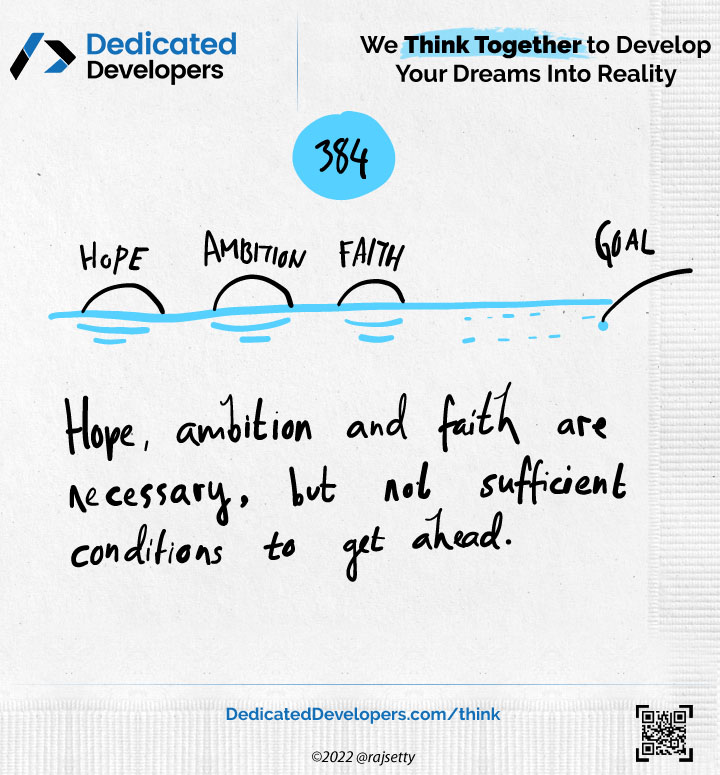 Dedicated
Developers
We Think Together to Develop
Your Dreams Into Reality
384
HOPE
AMBITION
FAITH
GOAL
Hope, ambition and faith are
necessary, but not sufficient
conditions to get ahead.
DedicatedDevelopers.com/think
©2022 @rajsetty